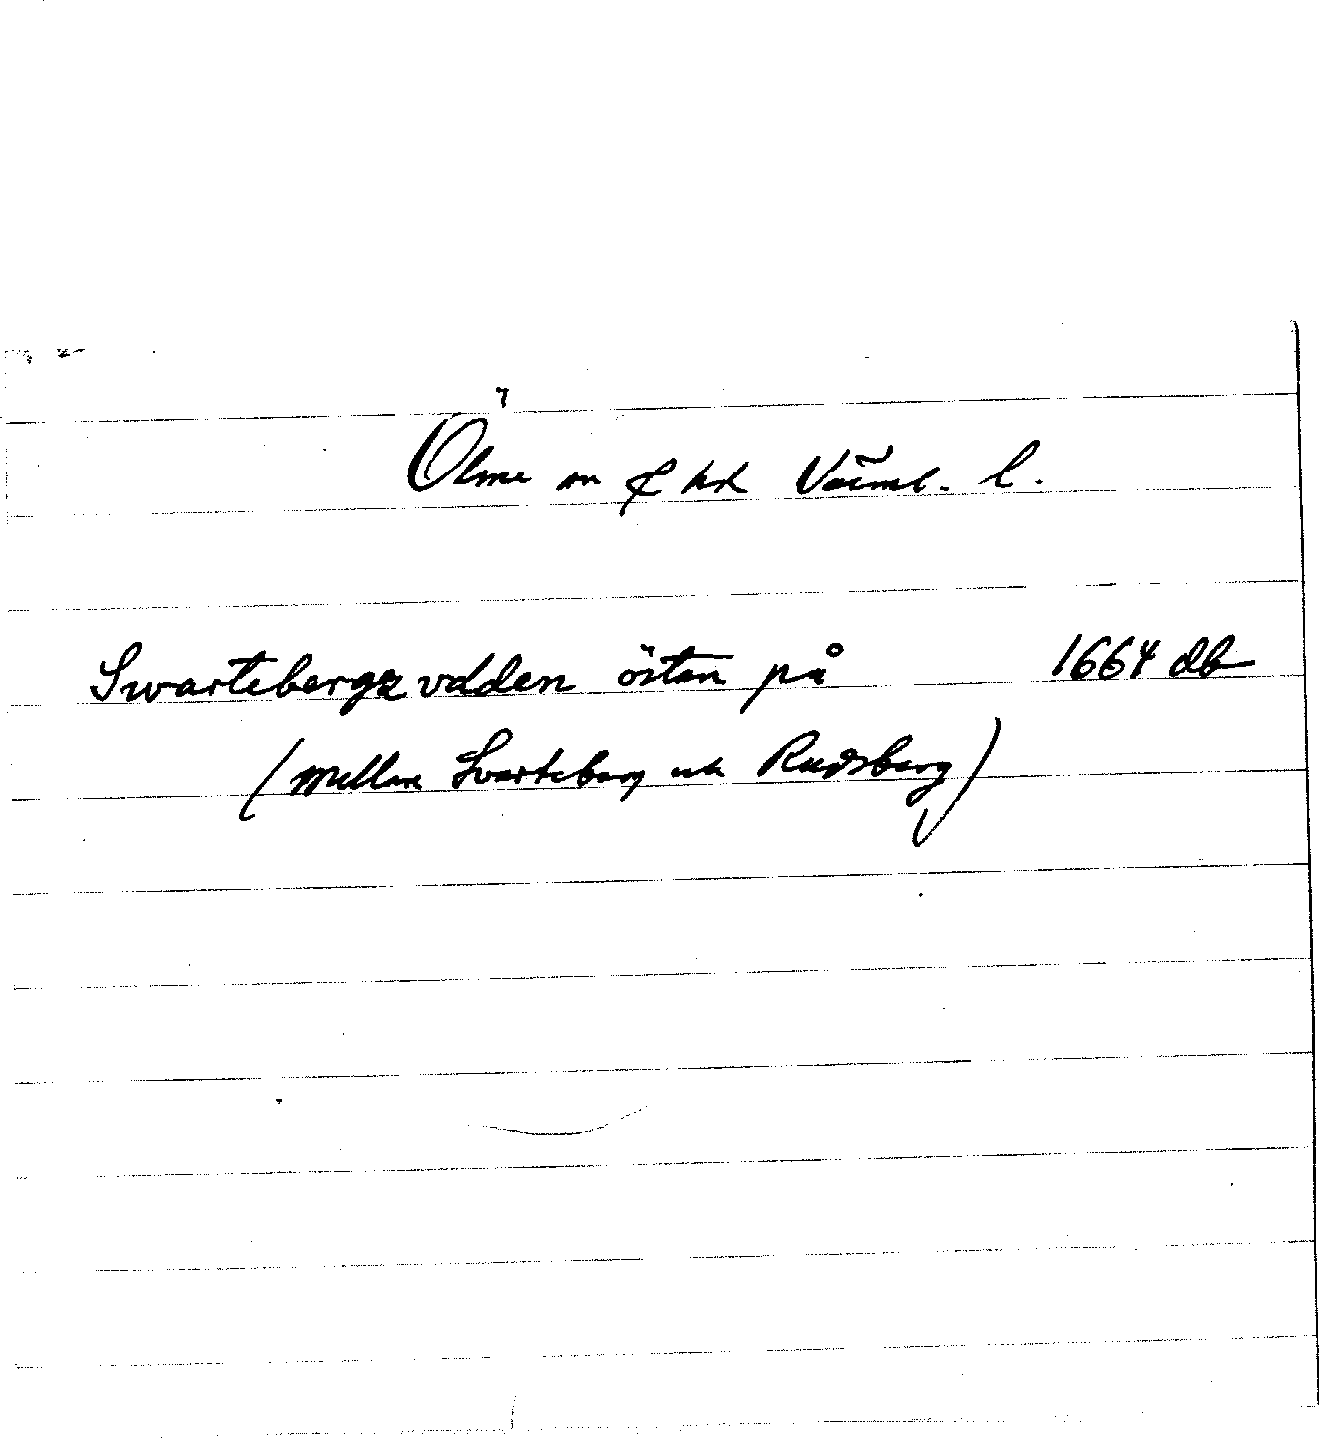 Ölme sn & hd Värml. l.
Swartebergz vdden östan på 1664 db
(mellan Svarteberg och Rudsberg)